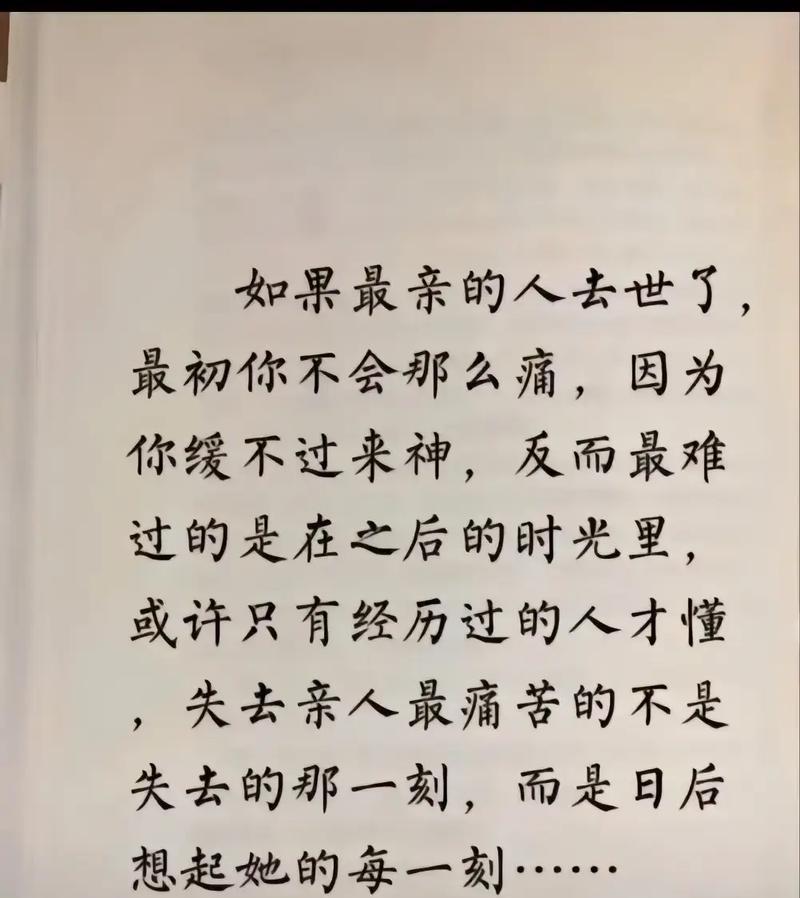 如果最亲的人去世了，
最初你不会那么痛，因为
你缓不过来神，反而最难
过的是在之后的时光里，
或许只有经历过的人才懂
，失去亲人最痛苦的不是
失去的那一刻，而是日后
想起她的每一刻……